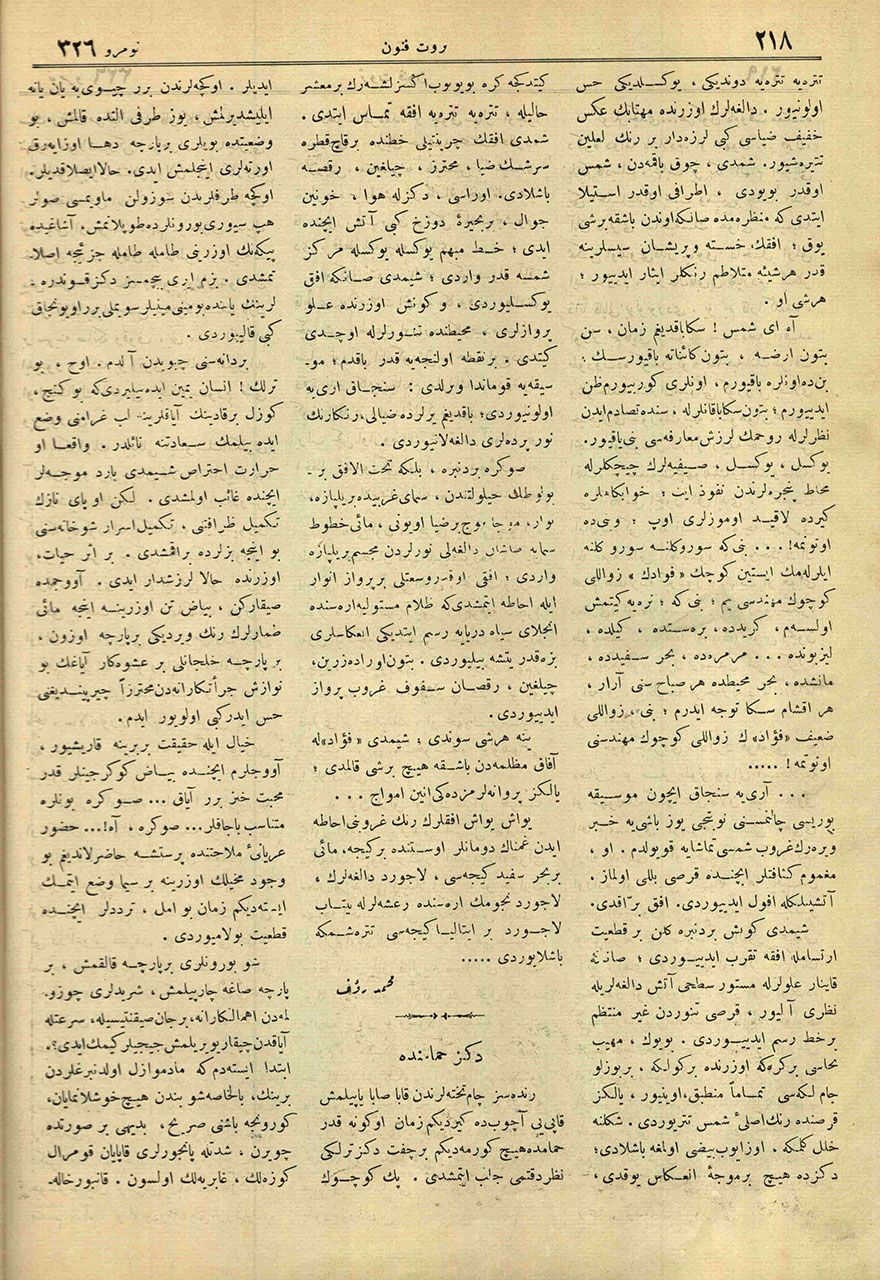 ٢١٨
ثروت فنون
نومرو ٣٢٦
تتره‌یه تتره‌یه دوندیکی ، یوکسلدیکی حس
اولونیور . دالغه‌لرك اوزرنده مهتابك عکس
خفیف ضیاسی کبی لرزه‌دار بر رنك لعلین
تتره‌شیور. شمدی ، چوق باقمه‌دن ، شمس
اوقدر بویودی ، اطرافی اوقدر استیلا
ایتدی که منظره‌مده صانکه اوندن باشقه برشی
یوق ؛ افقك خسته و پریشان سیسلرینه
قدر هرشیئه متلاطم رنکلر ایثار ایدییور ؛
هرشی او .
آه ای شمس ! سکا باقدیغم زمان ، سن
بتون ارضه ، بتون کائناته باقیورسك ؛
بن‌ده اونلره باقیورم ، اونلری کوریورم ظن
ایدییورم ؛ بتون سکا باقانلرله ، سنده تصادم ایدن
نظرلرله روحمك لرزش معارفه‌سی بنی یاقیور.
یوکسل ، یوکسل ، صیفیه‌لرك چیچکلرله
محاط پنجره‌لرندن نفوذ ایت ؛ خوابکاهلره
کیرده لاقید اوموزلری اوپ ؛ و بنی‌ده
اونوتمه! ... بنی که سوروکلنه سوروکلنه
ایلرله‌مك ایستین کوچك « فواد»ك زواللی
کوچوك مهندسی یم ؛ بنی که ؛ نره‌یه کیتمش
اولسه‌م ، کریدده ، بره‌ستده ، کیلده ،
لیزبونده ... مرمره‌ده ، بحر سفیدده ،
مانشده ، بحر محیطده هر صباح سنی آرار ،
هر اقشام سکا توجه ایدرم ؛ بنی ، زواللی
ضعیف «فؤاد» ك زواللی کوچوك مهندسنی
اونوتمه ! .....
... آری‌یه سنجاق ایچون موسیقه
بوریسی چالنمسنی نوبتجی یوز باشی‌یه خبر
ویره‌رك غروب شمسی تماشایه قویولدم . او ،
مغموم کثافتلر ایچنده قرصی بللی اولماز ،
آتشیلکله افول ایدییوردی. افق براقدی.
شیمدی کونش بردنبره کلن بر قطعیت
ارتسامله افقه تقرب ایدییوردی ؛ صانکه
قاینار علولرله مستور سطحی آتش دالغه‌لریله
نظری آلیور ، قرصی تنوردن غیر منتظم
برخط رسم ایدییوردی . بویوك ، مهیب
نحاسی برکره‌که اوزرنده برکولکه ، بربوزلو
جام لکه‌سی تماماً منطبق، اوینیور ، یالکز
قرصنده رنك اصلیٔ شمس تتریوردی . شکلنه
خلل کلمکه ، اوزایوب بیضی اولمغه باشلادی؛
دکزده هیچ برموجۀ انعکاس یوقدی ،
کیتدکجه کره بویویوب اکسزلشه‌رك برمعشر
حالیله ، تتره‌یه تتره‌یه افقه تماس ایتدی .
شمدی افقك چرپنتیلی خطنده برقاچ قطره
سرشك ضیا ، محترز ، چیلغین ، رقصه
باشلادی. اوراسی ، دکزله هوا ، خونین
جوال ، بربحیرۀ دوزخ کبی آتش ایچنده
ایدی ؛ خط مبهم یوکسله یوکسله مرکز
شمسه قدر واردی ؛ شیمدی صانکه افق
یوکسلیوردی ، و کونش اوزرنده علو
پروازلری ، محیطنده تنورلرله اوچدی
کیتدی . برنقطه اولنجه‌یه قدر باقدم ؛ مو-
سیقه‌یه قوماندا ویرلدی : سنجاق اری‌یه
اولونیوردی؛ باقدیغم یرلرده ضیالی، رنکارنك
نور پرده‌لری دالغه‌لانیوردی .
صوکره بردنبره ، بلکه تحت الافق بر
بولوطك حیلولتندن ، سمای غربیده بریلپازه،
نوار، مواج بر ضیا اویونی ، مائی خطوط
سمایه صاشان دالغه‌لی نورلردن مجسم بریلپازه
واردی ؛ افقی اوقدر وسعتلی برپرواز انوار
ایله احاطه ایتمشدی که ظلام مستولیه اره‌سنده
انجلای سیاه دریایه رسم ایتدیکی انعکاسلری
بزه‌قدر یتشه بیلیوردی . بتون اوراده زرین،
چیلغین ، رقصان سقوف غروب پرواز
ایدییوردی .
ینه هرشی سوندی ؛ شیمدی «فؤاد»له
آفاق مظلمه‌دن باشقه هیچ برشی قالمدی ؛
یالکز پروانه‌لرمزده‌کی انین امواج ...
یواش یواش افقلرك رنك غروبنی احاطه
ایدن غمناك دومانلر اوستنده برکیجه، مائی
بربحر سفید کیجه‌سی ، لاجورد دالغه‌لرك ،
لاجورد نجومك اره‌سنده رعشه‌لرله بیتاب
لاجورد بر ایتالیا کیجه‌سی تتره‌شمکه
باشلایوردی .....
محمد رؤف
دکز حمامنده
رنده‌سز چام تخته‌لرندن قابا صابا یاپیلمش
قاپی‌یی آچوب‌ده کیردیکم زمان اوکونه قدر
حمامده هیچ کورمه‌دیکم برچفت دکز ترلکی
نظر دقتمی جلب ایتمشدی . پك کوچوك
ایدیلر . اوکجه‌لرندن برر چیوی‌یه یان یانه
ایلیشدیرلمش، یوز طرفی التده قالمش ، بو
وضعیتده بویلری برپارچه دها اوزایه‌رق
اورته‌لری اینجلمش ایدی. حالا ایصلاقدیلر.
اوکجه طرفلریدن سوزولن ماویمسی صولر
هپ سیوری بورونلرده طوپلانمش، آشاغیده
پیکه‌نك اوزرینی طامله طامله جزئیجه اصلا-
تمشدی . بزم ایری بیچمسز دکز قوندره -
لرینك یاننده بو منی‌مینیلر سویملی برر اویونجاق
کبی قالیوردی .
بردانه‌سنی چیویدن آلدم . اوح ، بو
ترلك ! انسان یمین ایده‌بیلیردی که بو کنج ،
کوزل برقادینك آیاقلرینه لب غرامنی وضع
ایده بیلمك سعادتنه نائلدر . واقعا او
حرارت احتراص شیمدی بارد موجه‌لر
ایچنده غائب اولمشدی . لکن او پای نازك
تکمیل ظرافتی ، تکمیل اسرار شوخانه‌سنی
بو اینجه بزلرده براقمشدی . بر اثر حیات،
اوزرنده حالا لرزشدار ایدی . آووجمده
صیقارکن ، بیاض تن اوزرینه اینجه مائی
ضمارلرك رنك ویردیکی برپارچه اوزون ،
بر پارچه خلجانلی بر عشوه‌کار آیاغك بو
نوازش جرأتکارانه‌دن محترزاً چیرپیندیغنی
حس ایدرکبی اولویور ایدم .
خیال ایله حقیقت بربرینه قاریشیور ،
آووجلرم ایچنده بیاض کوکرجینلر قدر
محبت خیز برر آیاق ... صوکره بونلره
متناسب باجاقلر... صوکره ، آه!... حضور
عریانیٔ ملاحتنده پرستشه حاضرلاندیغم بو
وجود مخیلك اوزرینه بر سیما وضع ایتمك
ایسته‌دیکم زمان بو امل ، ترددلر ایچنده
قطعیت بولامیوردی .
شو بورونلری برپارچه قالقمش ، بر
پارچه صاغه چارپیلمش ، شریدلری چوزو-
لمه‌دن اهمالکارانه، برجان صیقنتیسیله، سرعتله
آیاقدن چیقاریویریلمش جیجیلر کیمك ایدی؟.
ابتدا ایسته‌دم که مادموازل اولدنبرغلردن
برینك، بالخاصه شو بندن هیچ خوشلانمایان،
کورونجه باشنی صریح ، بدیهی بر صورتده
چویرن ، شدتله پانجورلری قاپایان قومرال
کوزه‌لك ، غابریه‌لك اولسون . قانبورخاله-